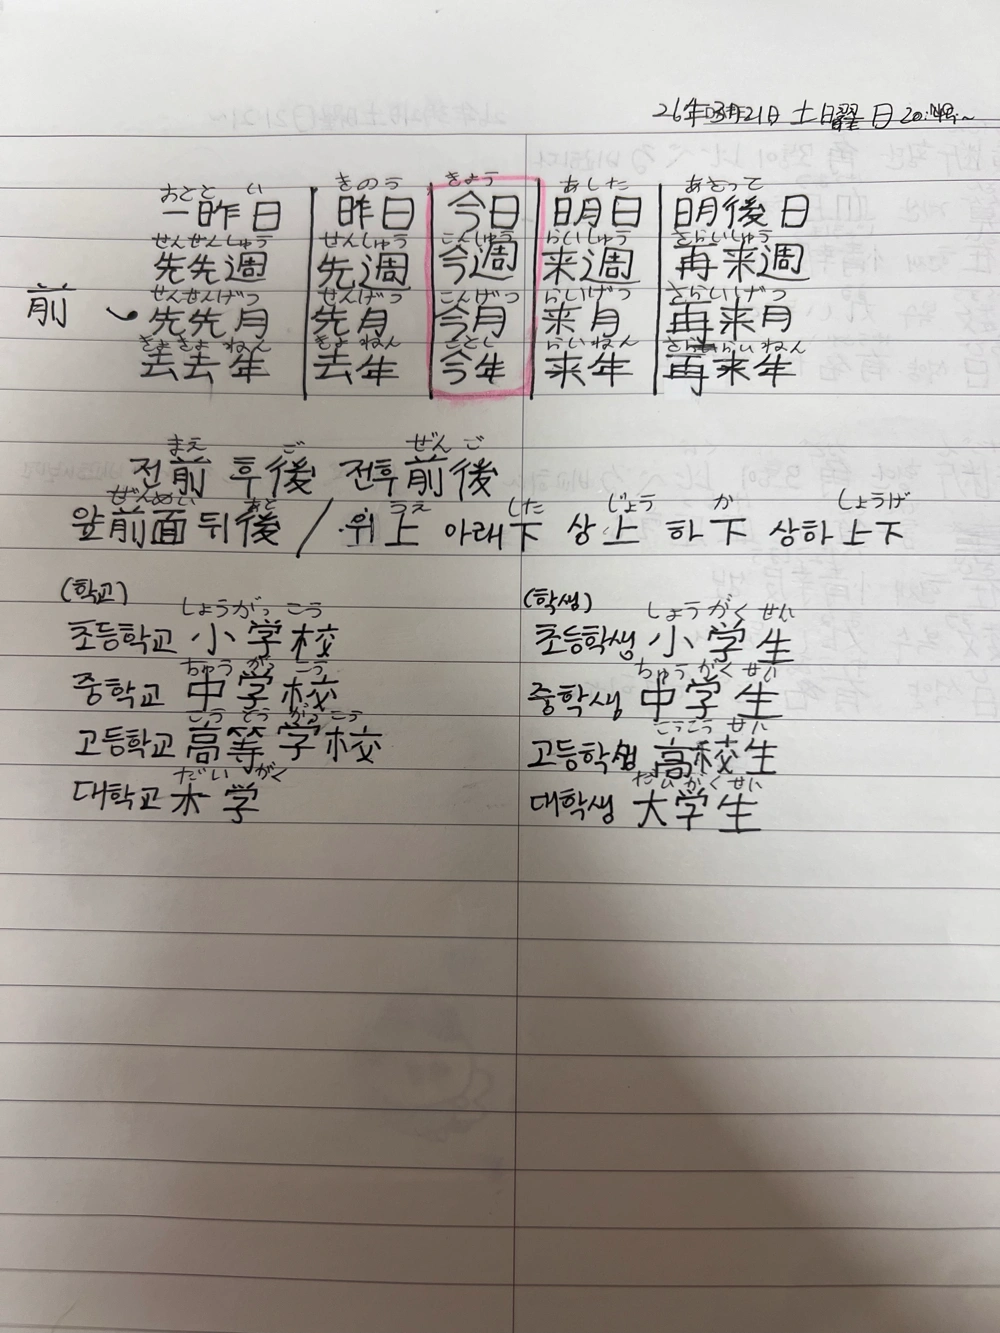 26年3月21日 土曜日
おととい きのう きょう あした あさって
一昨日 昨日 今日 明日 明後日
せんせんしゅう せんしゅう こんしゅう らいしゅう さらいしゅう
先先週 先週 今週 来週 再来週
せんせんげつ せんげつ こんげつ らいげつ さらいげつ
前 先先月 先月 今月 来月 再来月
きょきょねん きょねん ことし らいねん さらいねん
去去年 去年 今年 来年 再来年
まえ ご ぜんご
전前 후後 전후前後
ぜんめい あと うえ した じょう か しょうげ
앞前面 뒤後 / 위上 아래下 상上 하下 상하上下
(학교) (학생)
しょうがっこう しょうがくせい
초등학교 小学校 초등학생 小学生
ちゅうがっこう ちゅうがくせい
중학교 中学校 중학생 中学生
こうとうがっこう こうこうせい
고등학교 高等学校 고등학생 高校生
だいがく だいがくせい
대학교 大学 대학생 大学生